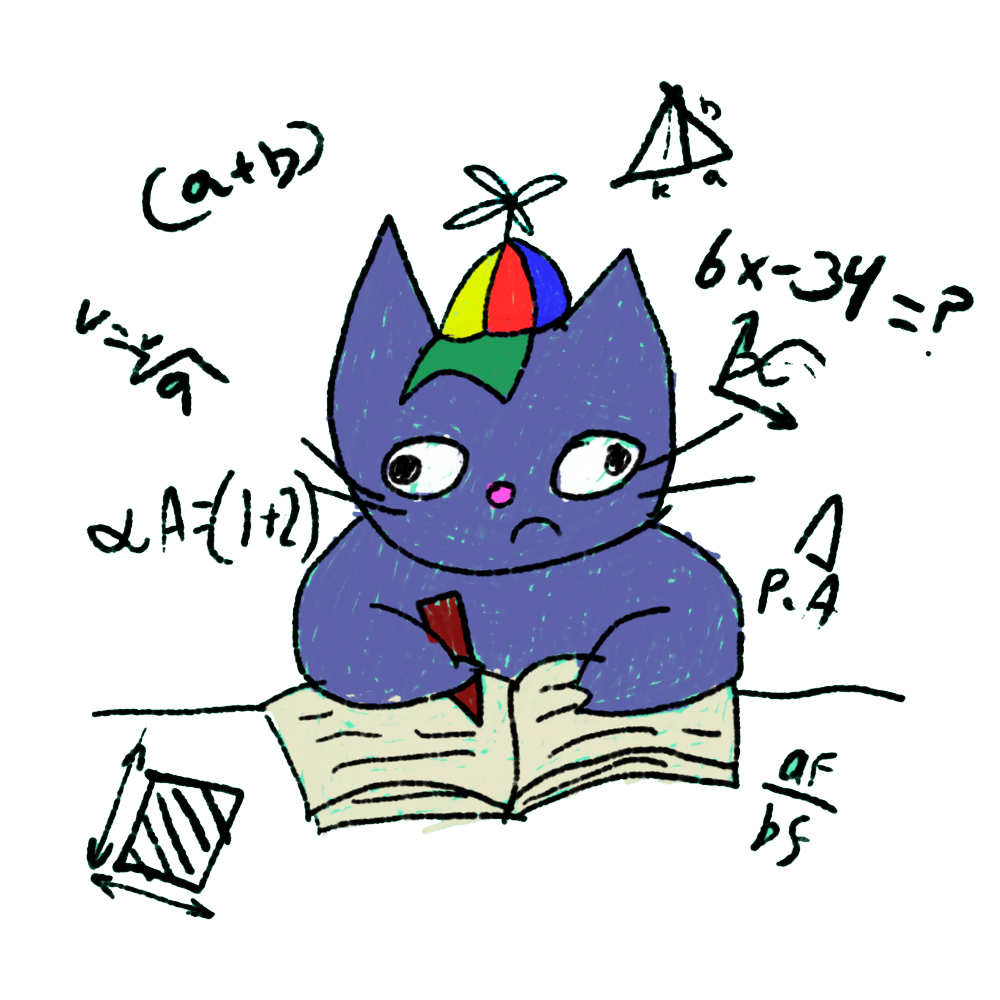 (a+b)
h
k a
6x-34=?
αA=(1+2)
P.A
aF
bf